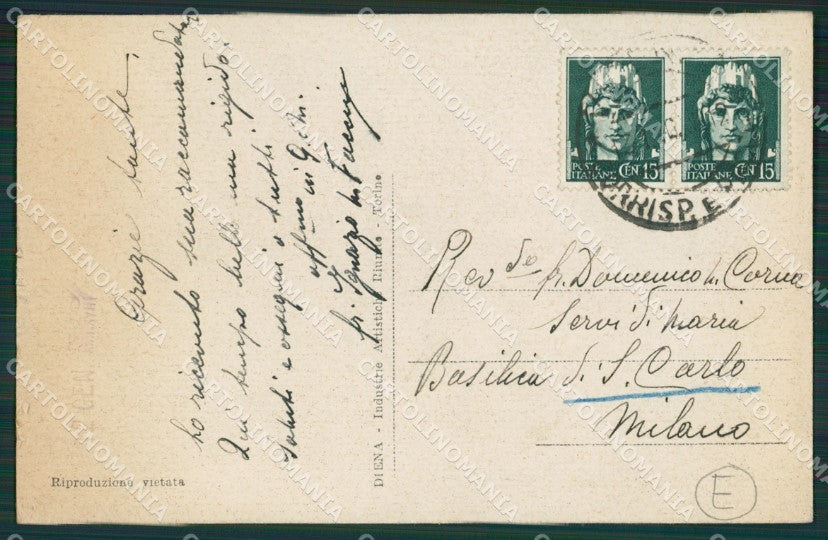 Grazie tante,
ho ricevuto sua raccomandata.
Qui tempo bello ma rigido.
Saluti e ossequi a tutti
aff.mo in G.
fr. Ignazio M.
Rev.do fr. Domenico M. Corna
Servi di Maria
Basilica di S. Carlo
Milano
POSTE ITALIANE CENT 15
POSTE ITALIANE CENT 15
CORRISP. E
DIENA - Industrie Artistiche Riunite - Torino
Riproduzione vietata
E
CARTOLINOMANIA